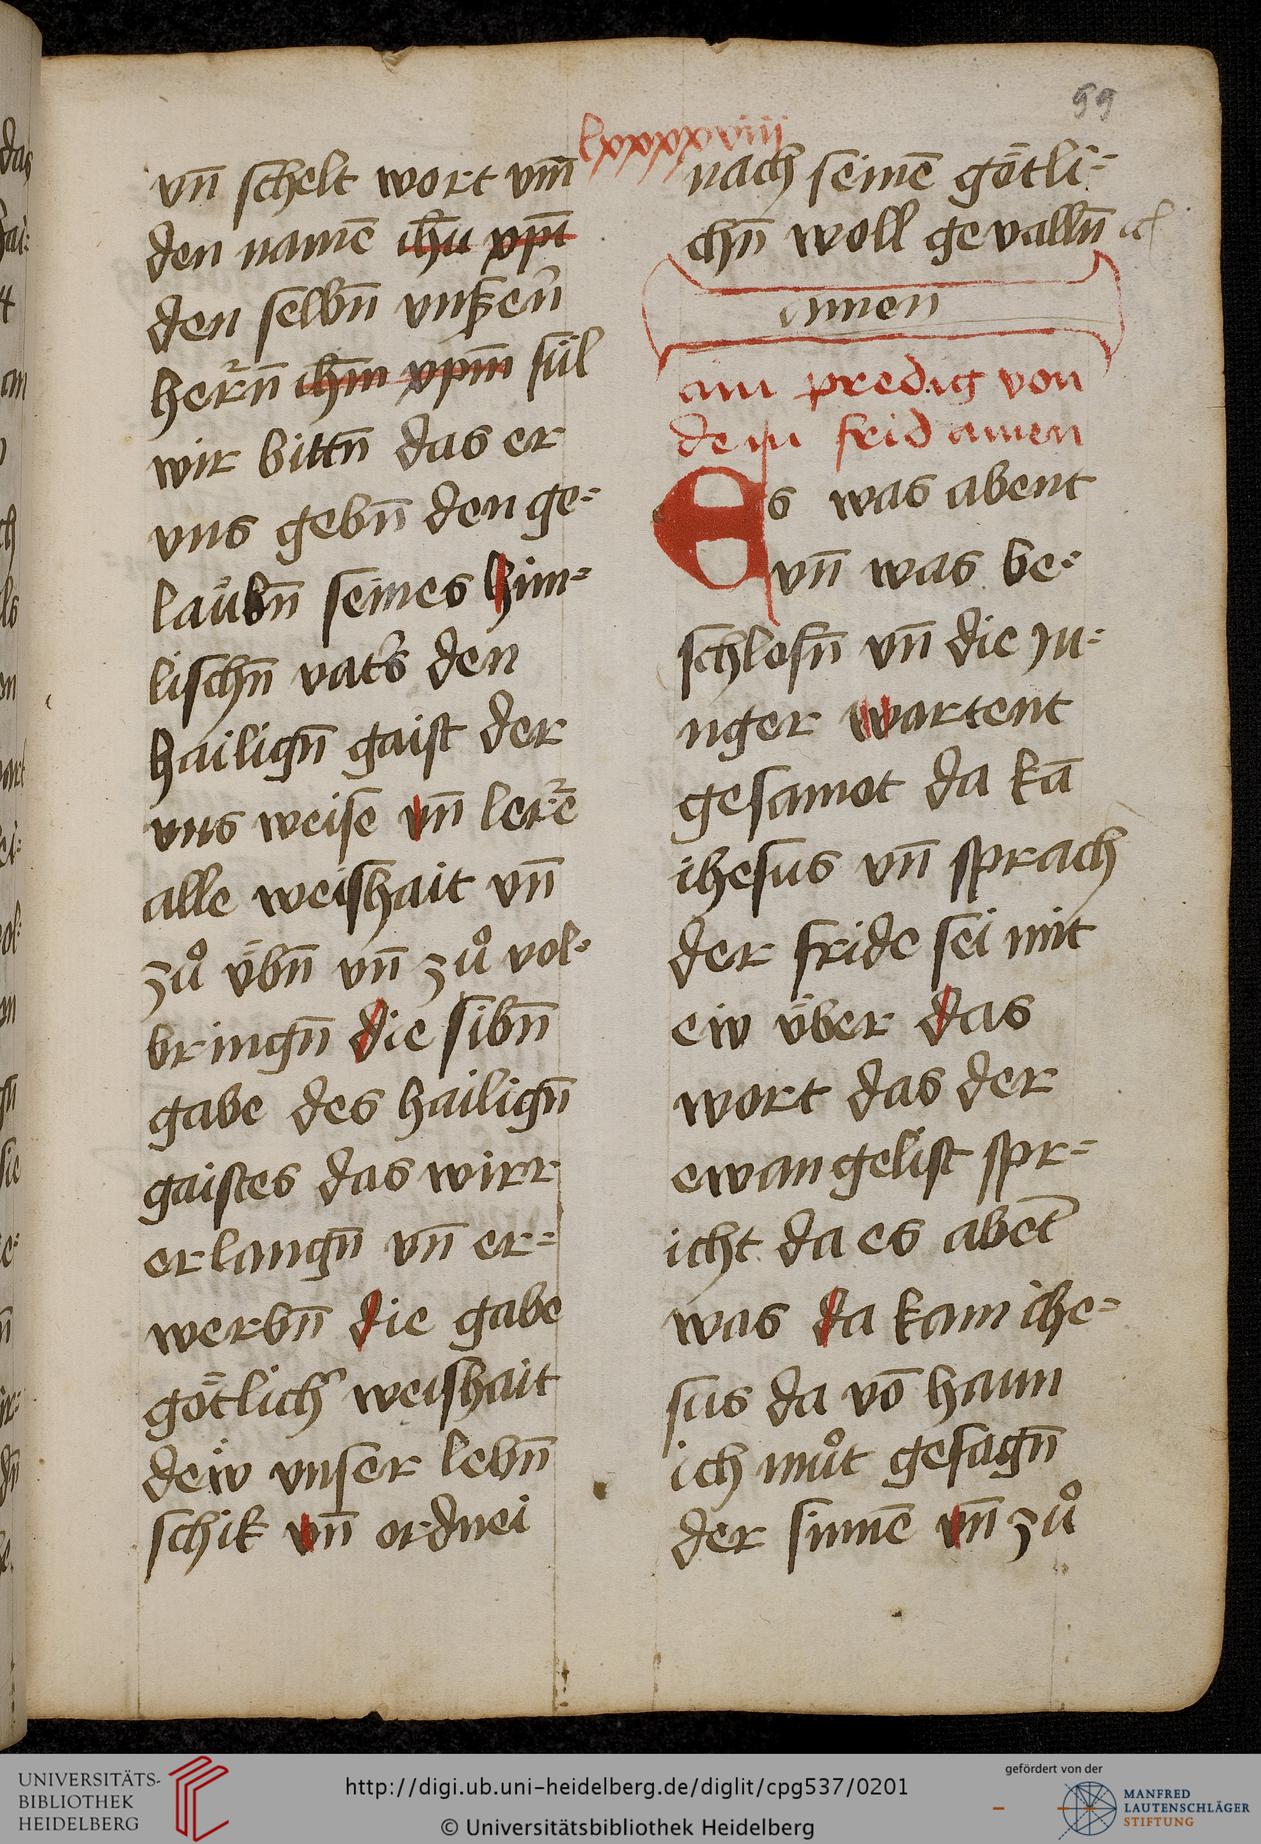 99
lxxxxxviiij
vn̄ schelt wort vm̄
den namē ih̄u xp̄i
den selbn̄ vnsern̄
herrn̄ ih̄m xpm̄ sül
wir bittn̄ das er
vns gebn̄ den ge=
laübn̄ seines him=
lischn̄ vaters den
hailign̄ gaist der
vns weise vn̄ lerē
alle weishait vn̄
zů übn̄ vn̄ zů vol=
bringn̄ die sibn̄
gabe des hailign̄
gaistes das wirr
erlangn̄ vn̄ er=
werbn̄ die gabe
götlicher weishait
dew̎ vnser lebn̄
schik vn̄ ordnei
nach seinē götli=
chn̄ woll gevalln̄
amen
ain predig von
dem frid amen
Es was abent
vn̄ was be=
schlosn̄ vn̄ die Ju=
nger wartent
gesamot da kā
ihesus vn̄ sprach
der fride sei mit
ew über das
wort das der
ewangelist spr=
icht da es abēt
was da kam ihe=
sus da vō haun
ich můt gesagn̄
der sinnē vn̄ zů
UNIVERSITÄTS-
BIBLIOTHEK
HEIDELBERG
http://digi.ub.uni-heidelberg.de/diglit/cpg537/0201
© Universitätsbibliothek Heidelberg
gefördert von der
MANFRED
LAUTENSCHLÄGER
STIFTUNG